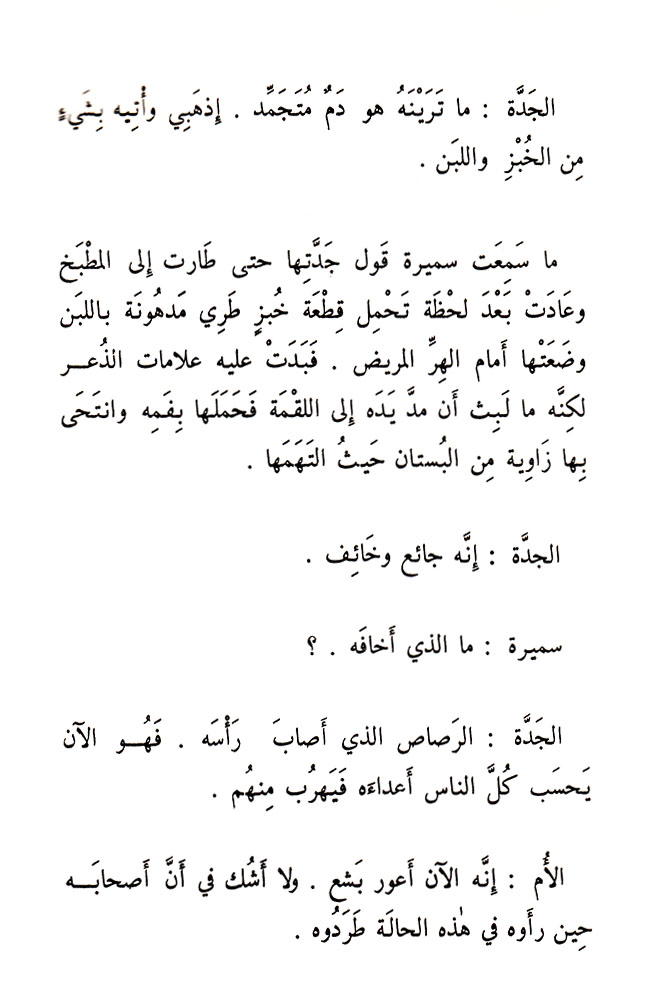 الجَدَّة : ما تَرَيْنَهُ هو دَمٌ مُتَجَمِّد . إِذهَبِي وأْتِيه بِشَيءٍ
مِن الخُبْزِ واللبَن .
ما سَمِعَت سميرة قَول جَدَّتِها حتى طَارت إِلى المطْبَخ
وعَادَتْ بَعْدَ لحْظَة تَحْمِل قِطْعَة خُبزٍ طَرِي مَدهُونَة باللبَن
وضَعَتْها أَمام الهِرِّ المريض . فَبَدَتْ عليه علامات الذُعـر
لكِنَّه ما لَبِث أَن مدَّ يَدَه إِلى اللقْمَة فَحَمَلَها بِفَمِه وانتَحَى
بِها زَاوِية مِن البُستان حَيثُ التَهَمَها .
الجدَّة : إِنَّه جائع وخَائِف .
سميرة : ما الذي أَخافَه . ؟
الجَدَّة : الرَصاص الذي أَصابَ رَأْسَه . فَهُـو الآن
يَحسَب كُلَّ الناس أَعداءَه فَيَهرُب مِنهُم .
الأُم : إِنَّه الآن أَعور بَشع . ولا أَشُك في أَنَّ أَصحابَـه
حِين رأَوه في هٰذه الحالَة طَرَدُوه .